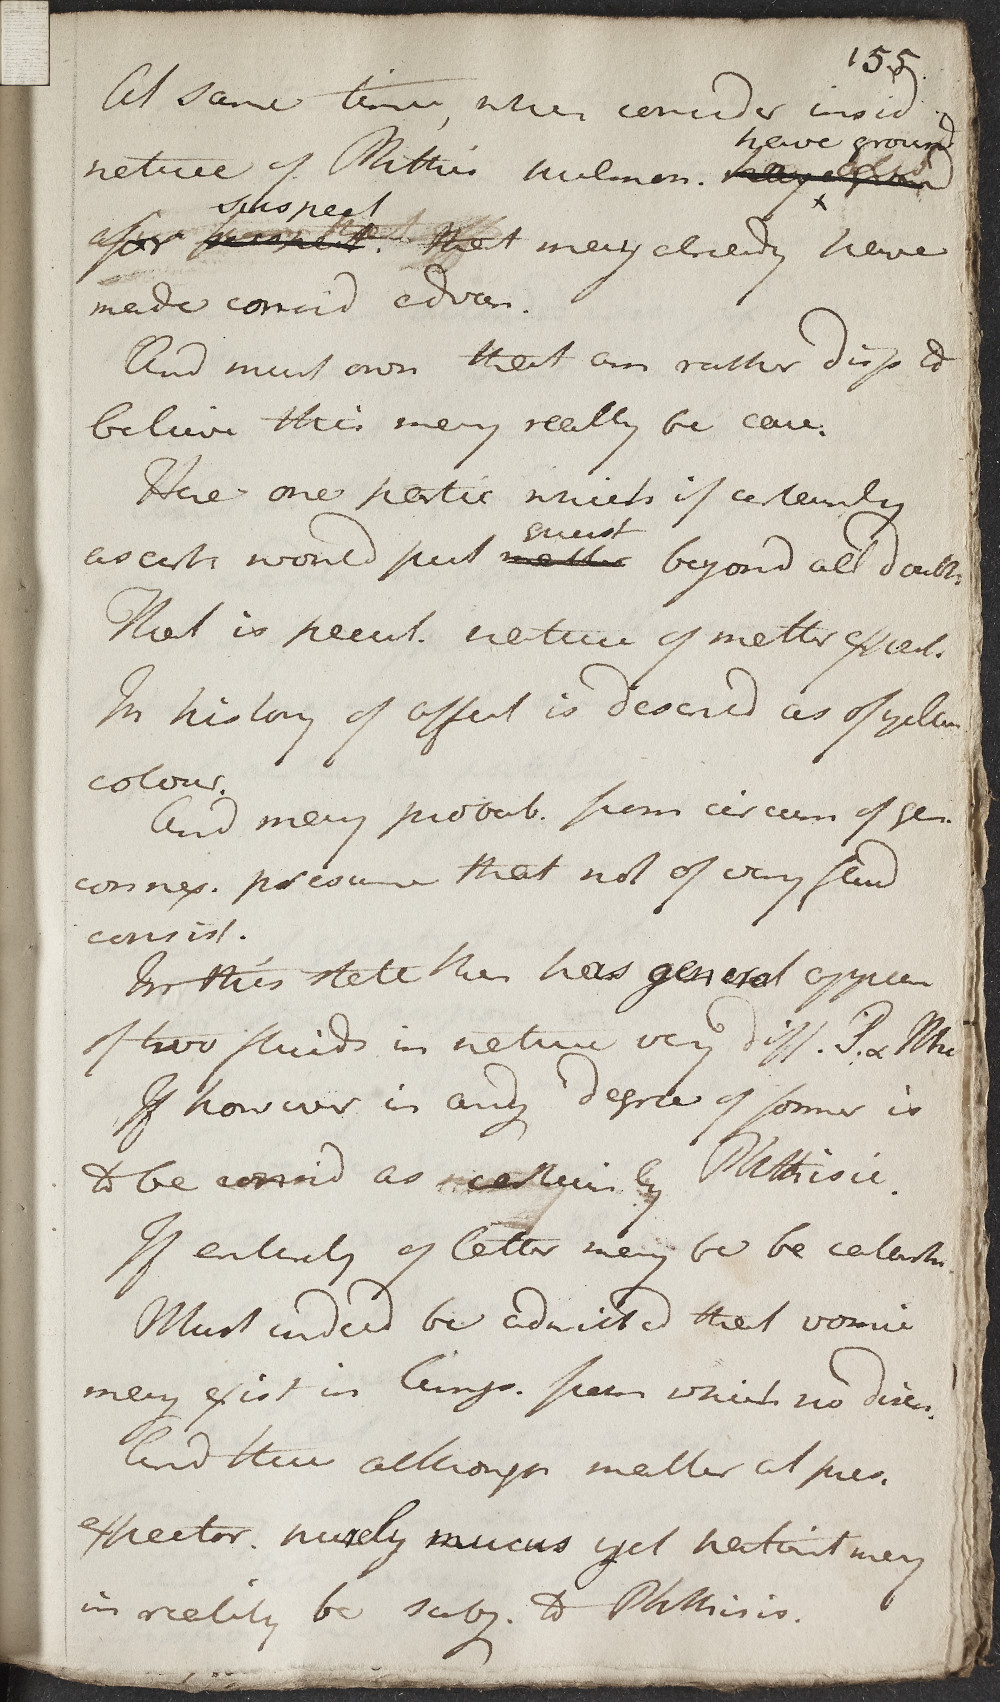 155
At same time, when consider insid.
nature of Phthis pulmon. have ground
for suspect. that may already have
made consid advan.
And must own that am rather disp to
believe this may really be case.
Here one partic which if certainly
ascert. would put quest beyond all doubt.
That is pecul. nature of matter expect.
In history of affect is descred as of yellow
colour.
And may probab. from circum of gen.
connex. presume that not of very fluid
consist.
In this state then has general appear
of two fluids in nature very diff. P. & Mu
If however in any degree of former is
to be consid as certainly Phthisic.
If entirely of latter may be be catarrh.
Must indeed be admitted that vomic
may exist in lungs. from which no disch.
And thus although matter at pres.
expector. purely mucus yet patient may
in reality be subj. to Phthisis.